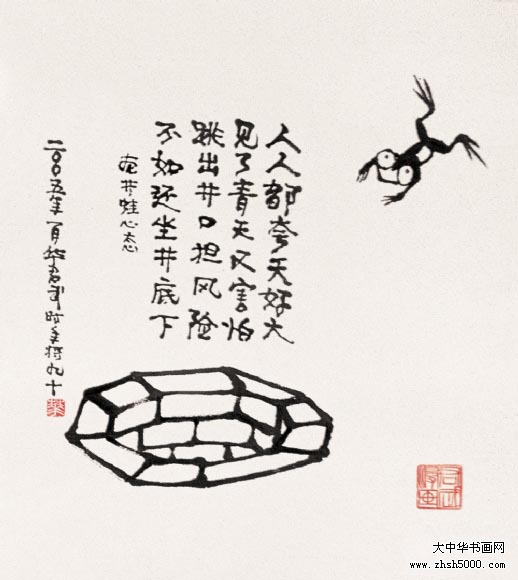 人人都夸天好大
见了青天又害怕
跳出井口担风险
不如还坐井底下
井蛙心态
二〇〇五年一月华君武时年将九十
大中华书画网
www.zhsh5000.com